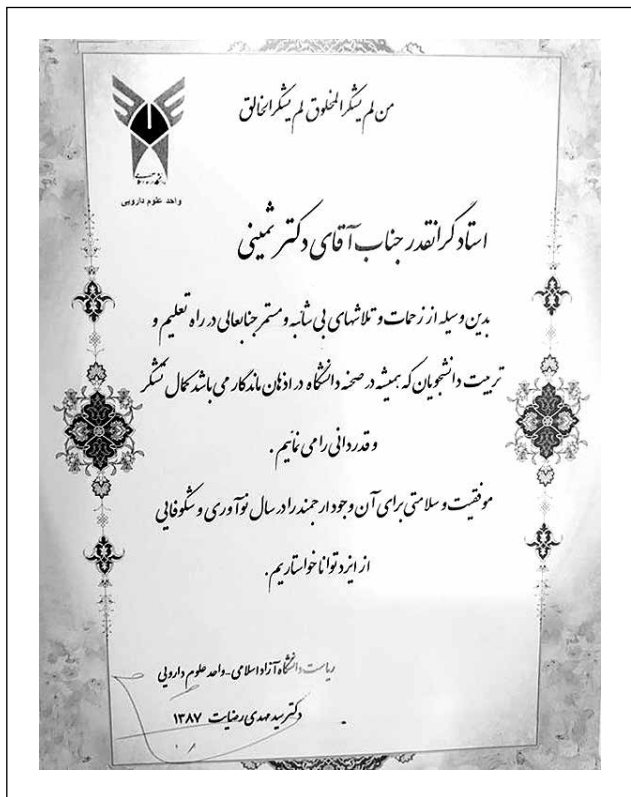 من لم یشکر المخلوق لم یشکر الخالق
واحد علوم دارویی
استاد گرانقدر جناب آقای دکتر ثمینی
بدین وسیله از زحمات و تلاشهای بی شائبه و مستمر جنابعالی در راه تعلیم و
تربیت دانشجویان که همیشه در صحنه دانشگاه در اذهان ماندگار می باشد کمال تشکر
و قدردانی را می نمائیم .
موفقیت و سلامتی برای آن وجود ارجمند را در سال نوآوری و شکوفایی
از ایزد توانا خواستاریم .
ریاست دانشگاه آزاد اسلامی - واحد علوم دارویی
دکتر سید مهدی رضایت ۱۳۸۷